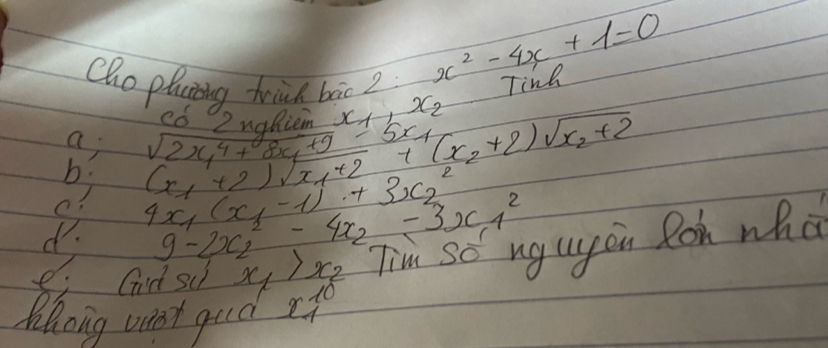 Cho phương trình bậc 2: x² - 4x + 1=0
có 2 nghiệm x₁, x₂ Tính
a; √(2x₁⁴ + 8x₁ + 9) - 5x₁
b; (x₁ + 2)√(x₁+2) + (x₂+2)√(x₂+2)
c: 4x₁(x₁ - 1) + 3x₂²
d. 9 - 2x₂ - 4x₂ - 3x₁²
e; Giả sử x₁ > x₂ Tìm số nguyên lớn nhấ
không vượt quá x₁¹⁰